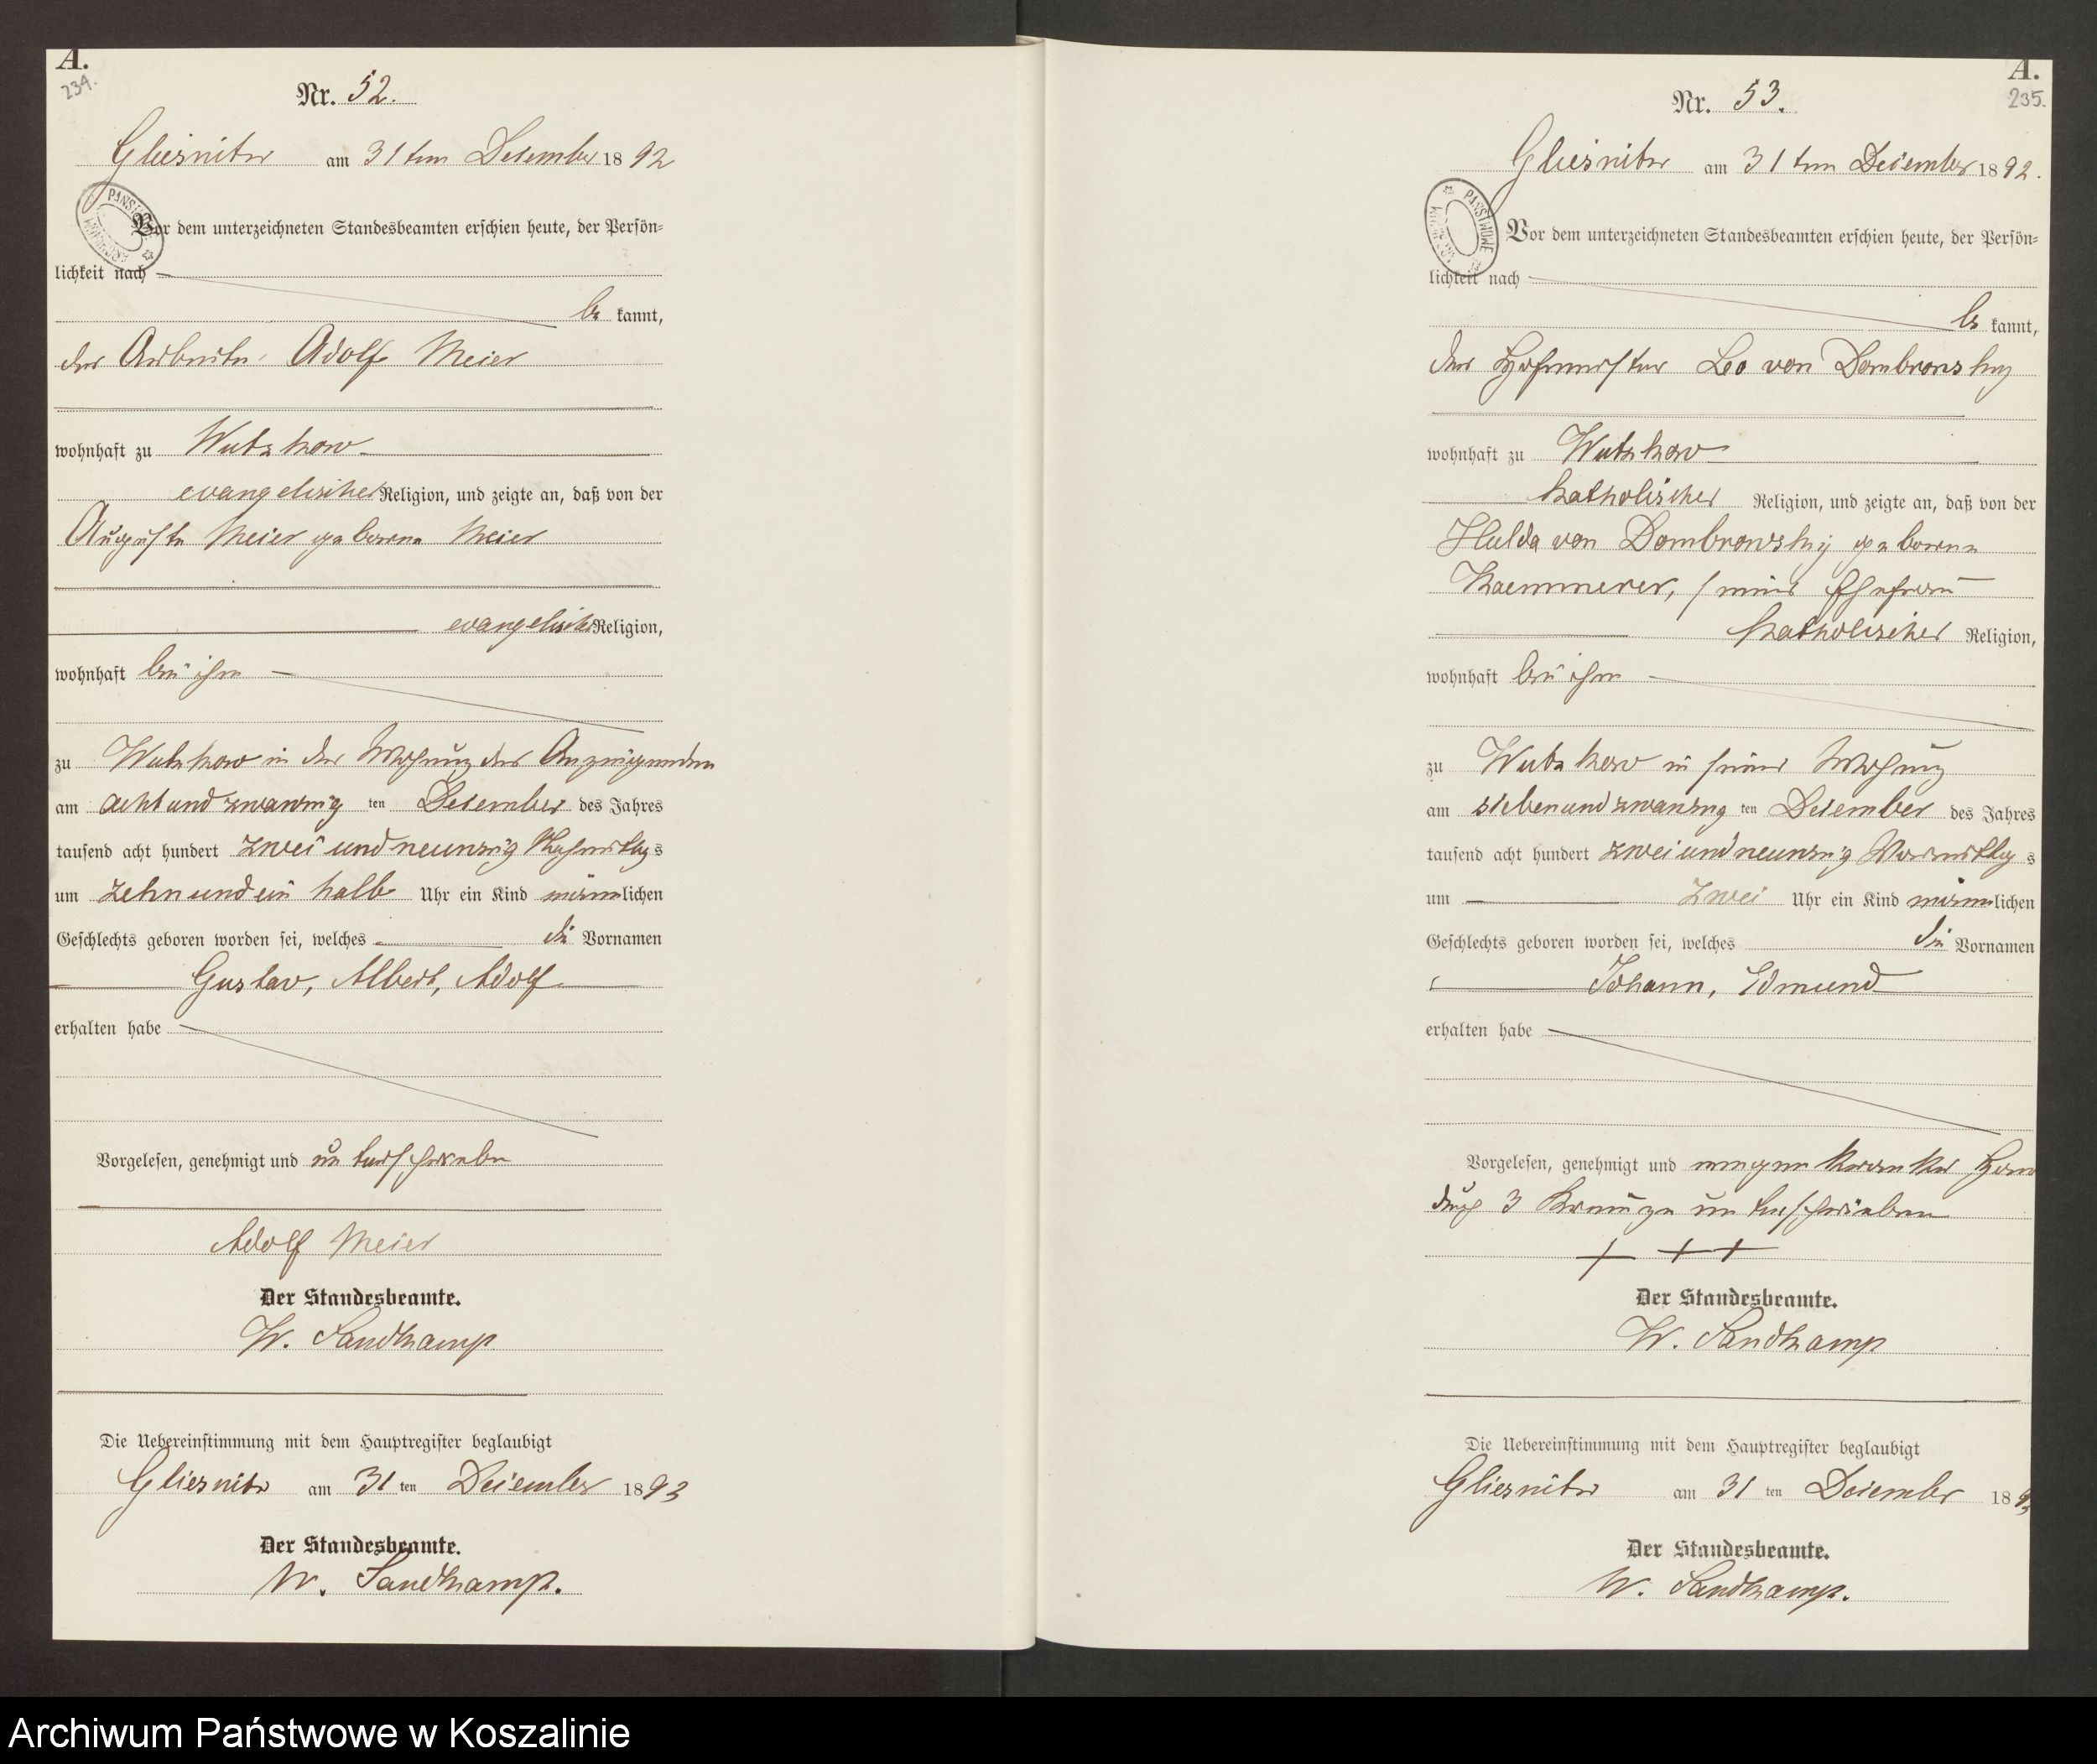 A.
234.
Nr. 52.
Gliesnitz am 31ten Dezember 1892
Vor dem unterzeichneten Standesbeamten erschien heute, der Persön-
lichkeit nach
be kannt,
der Arbeiter Adolf Meier
wohnhaft zu Wutzkow
evangelischer Religion, und zeigte an, daß von der
Auguste Meier geborne Meier
evangelischer Religion,
wohnhaft bei ihm
zu Wutzkow in der Wohnung des Anzeigenden
am acht und zwanzig ten Dezember des Jahres
tausend acht hundert zwei und neunzig Nachmittags
um zehn und ein halb Uhr ein Kind männlichen
Geschlechts geboren worden sei, welches die Vornamen
Gustav, Albert, Adolf
erhalten habe
Vorgelesen, genehmigt und unterschrieben
Adolf Meier
Der Standesbeamte.
W. Sandkamp
Die Uebereinstimmung mit dem Hauptregister beglaubigt
Gliesnitz am 31 ten Dezember 1893
Der Standesbeamte.
W. Sandkamp.
A.
235.
Nr. 53.
Gliesnitz am 31ten Dezember 1892.
Vor dem unterzeichneten Standesbeamten erschien heute, der Persön-
lichkeit nach
be kannt,
der Hofmeister Leo von Dombrowsky
wohnhaft zu Wutzkow
katholischer Religion, und zeigte an, daß von der
Hulda von Dombrowsky geborne
Kaemmerer, seiner Ehefrau
katholischer Religion,
wohnhaft bei ihm
zu Wutzkow in seiner Wohnung
am siebenundzwanzig ten Dezember des Jahres
tausend acht hundert zwei und neunzig Vormittags
um zwei Uhr ein Kind männlichen
Geschlechts geboren worden sei, welches die Vornamen
Johann, Edmund
erhalten habe
Vorgelesen, genehmigt und wegen kranker Hand
durch 3 Kreuze unterschrieben
+ + +
Der Standesbeamte.
W. Sandkamp
Die Uebereinstimmung mit dem Hauptregister beglaubigt
Gliesnitz am 31 ten Dezember 1893
Der Standesbeamte.
W. Sandkamp.
Archiwum Państwowe w Koszalinie